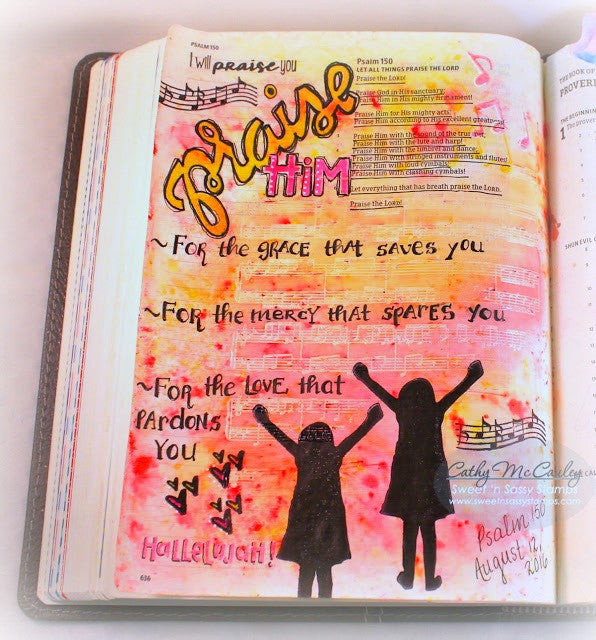 PSALM 150
I will praise you
praise
HiM
Psalm 150
LET ALL THINGS PRAISE THE LORD
Praise the LORD!
Praise God in His sanctuary;
Praise Him in His mighty firmament!
Praise Him for His mighty acts;
Praise Him according to His excellent greatness!
Praise Him with the sound of the trumpet;
Praise Him with the lute and harp!
Praise Him with the timbrel and dance;
Praise Him with stringed instruments and flutes!
Praise Him with loud cymbals;
Praise Him with clashing cymbals!
Let everything that has breath praise the LORD.
Praise the LORD!
~FOR the GRACE that SAVES YOU
~FOR the MERCY tHAt SPARES YOU
~FOR the LOVE that
PARDONS
YOU
HallelujaH!
Cathy McCauley
Sweet 'n Sassy Stamps
www.sweetnsassystamps.com
Psalm 150
August 12,
2016
636
THE BOOK OF
PROVERB
THE BEGINNING
1 The prover
SHUN EVIL C